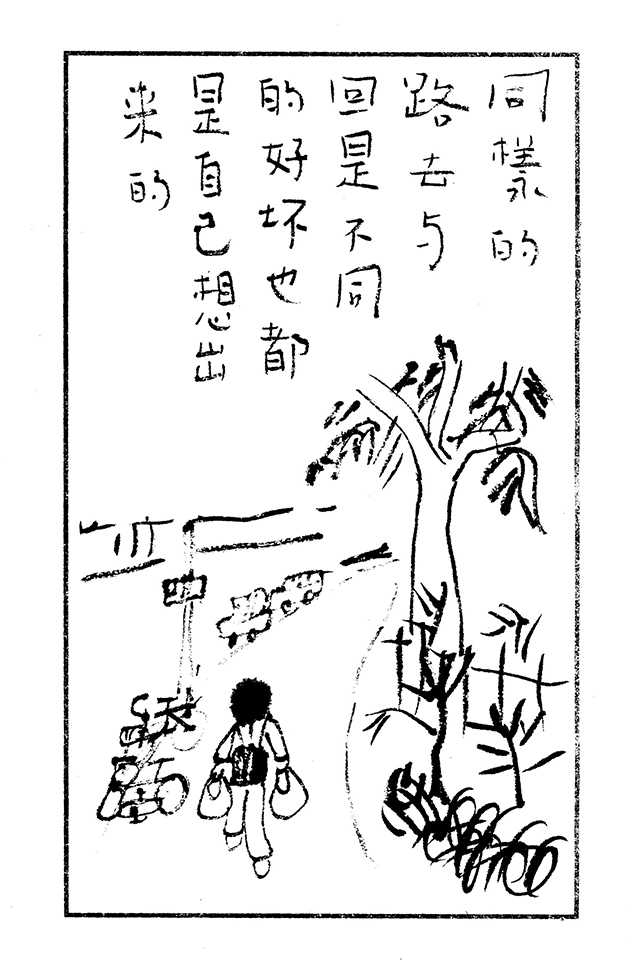 同樣的
路去与
回是不同
的好坏也都
是自己想出
来的